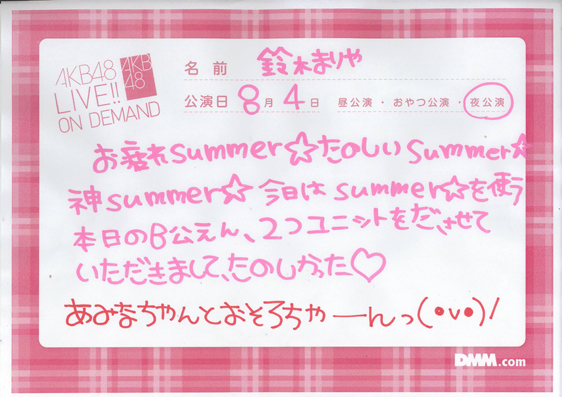 AKB48
LIVE!!
ON DEMAND
AKB
48
名前 鈴木まりや
公演日 8月4日 昼公演・おやつ公演・夜公演
お疲れsummer☆たのしいsummer☆
神summer☆今日はsummer☆を使う
本日のB公えん、2つユニットをださせて
いただきまして、たのしかった♡
あみなちゃんとおそろちゃーんっ(•v•)/
DMM.com